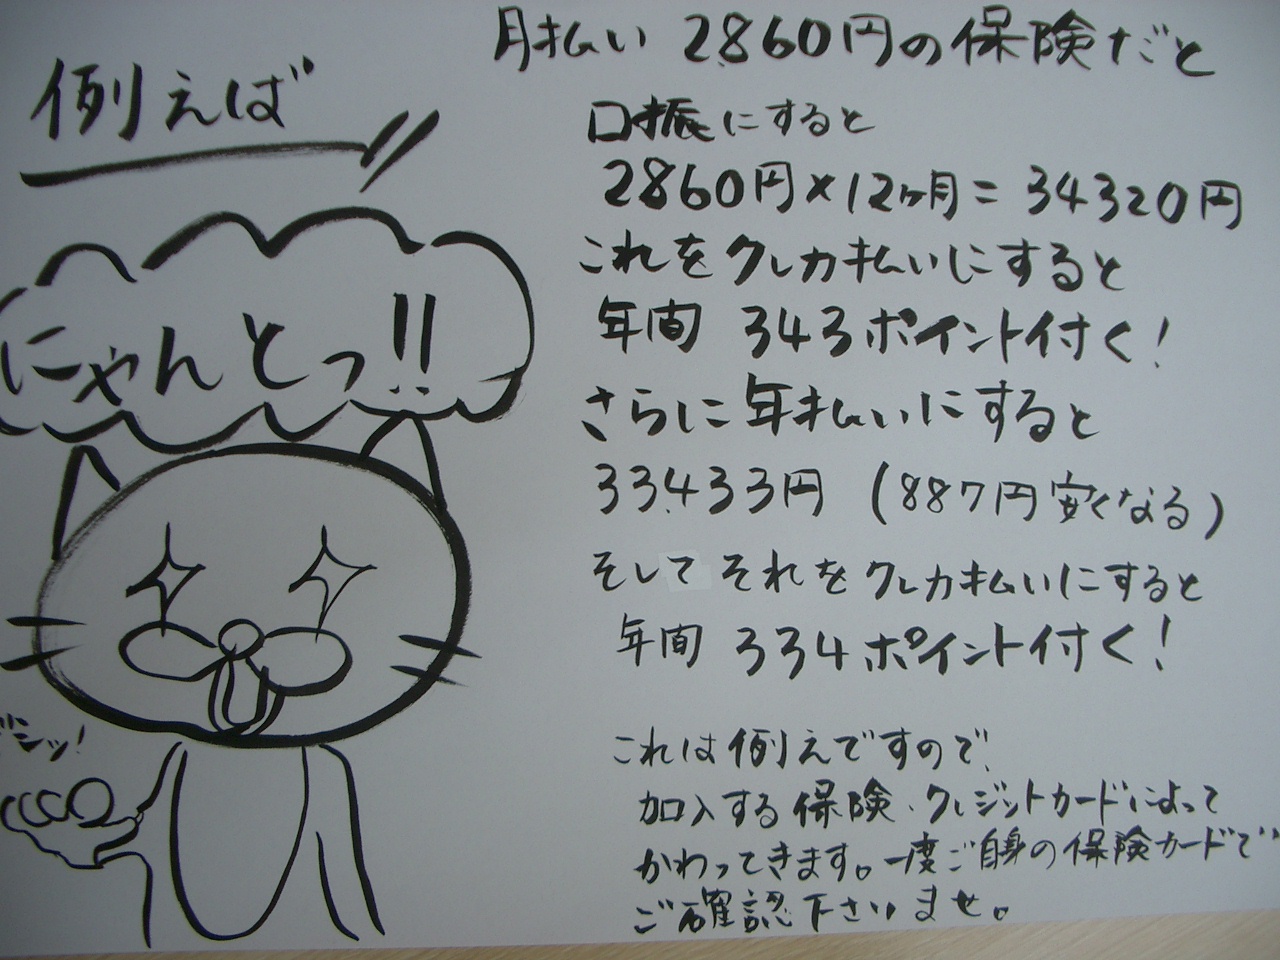 例えば
にゃんとっ!!
月払い 2860円の保険だと
口振にすると
2860円×12ヶ月=34320円
これをクレカ払いにすると
年間 343ポイント付く!
さらに年払いにすると
33.433円 (887円安くなる)
そしてそれをクレカ払いにすると
年間 334ポイント付く!
これは例えですので、
加入する保険、クレジットカードによって
かわってきます。一度ご自身の保険カードで
ご確認下さいませ。